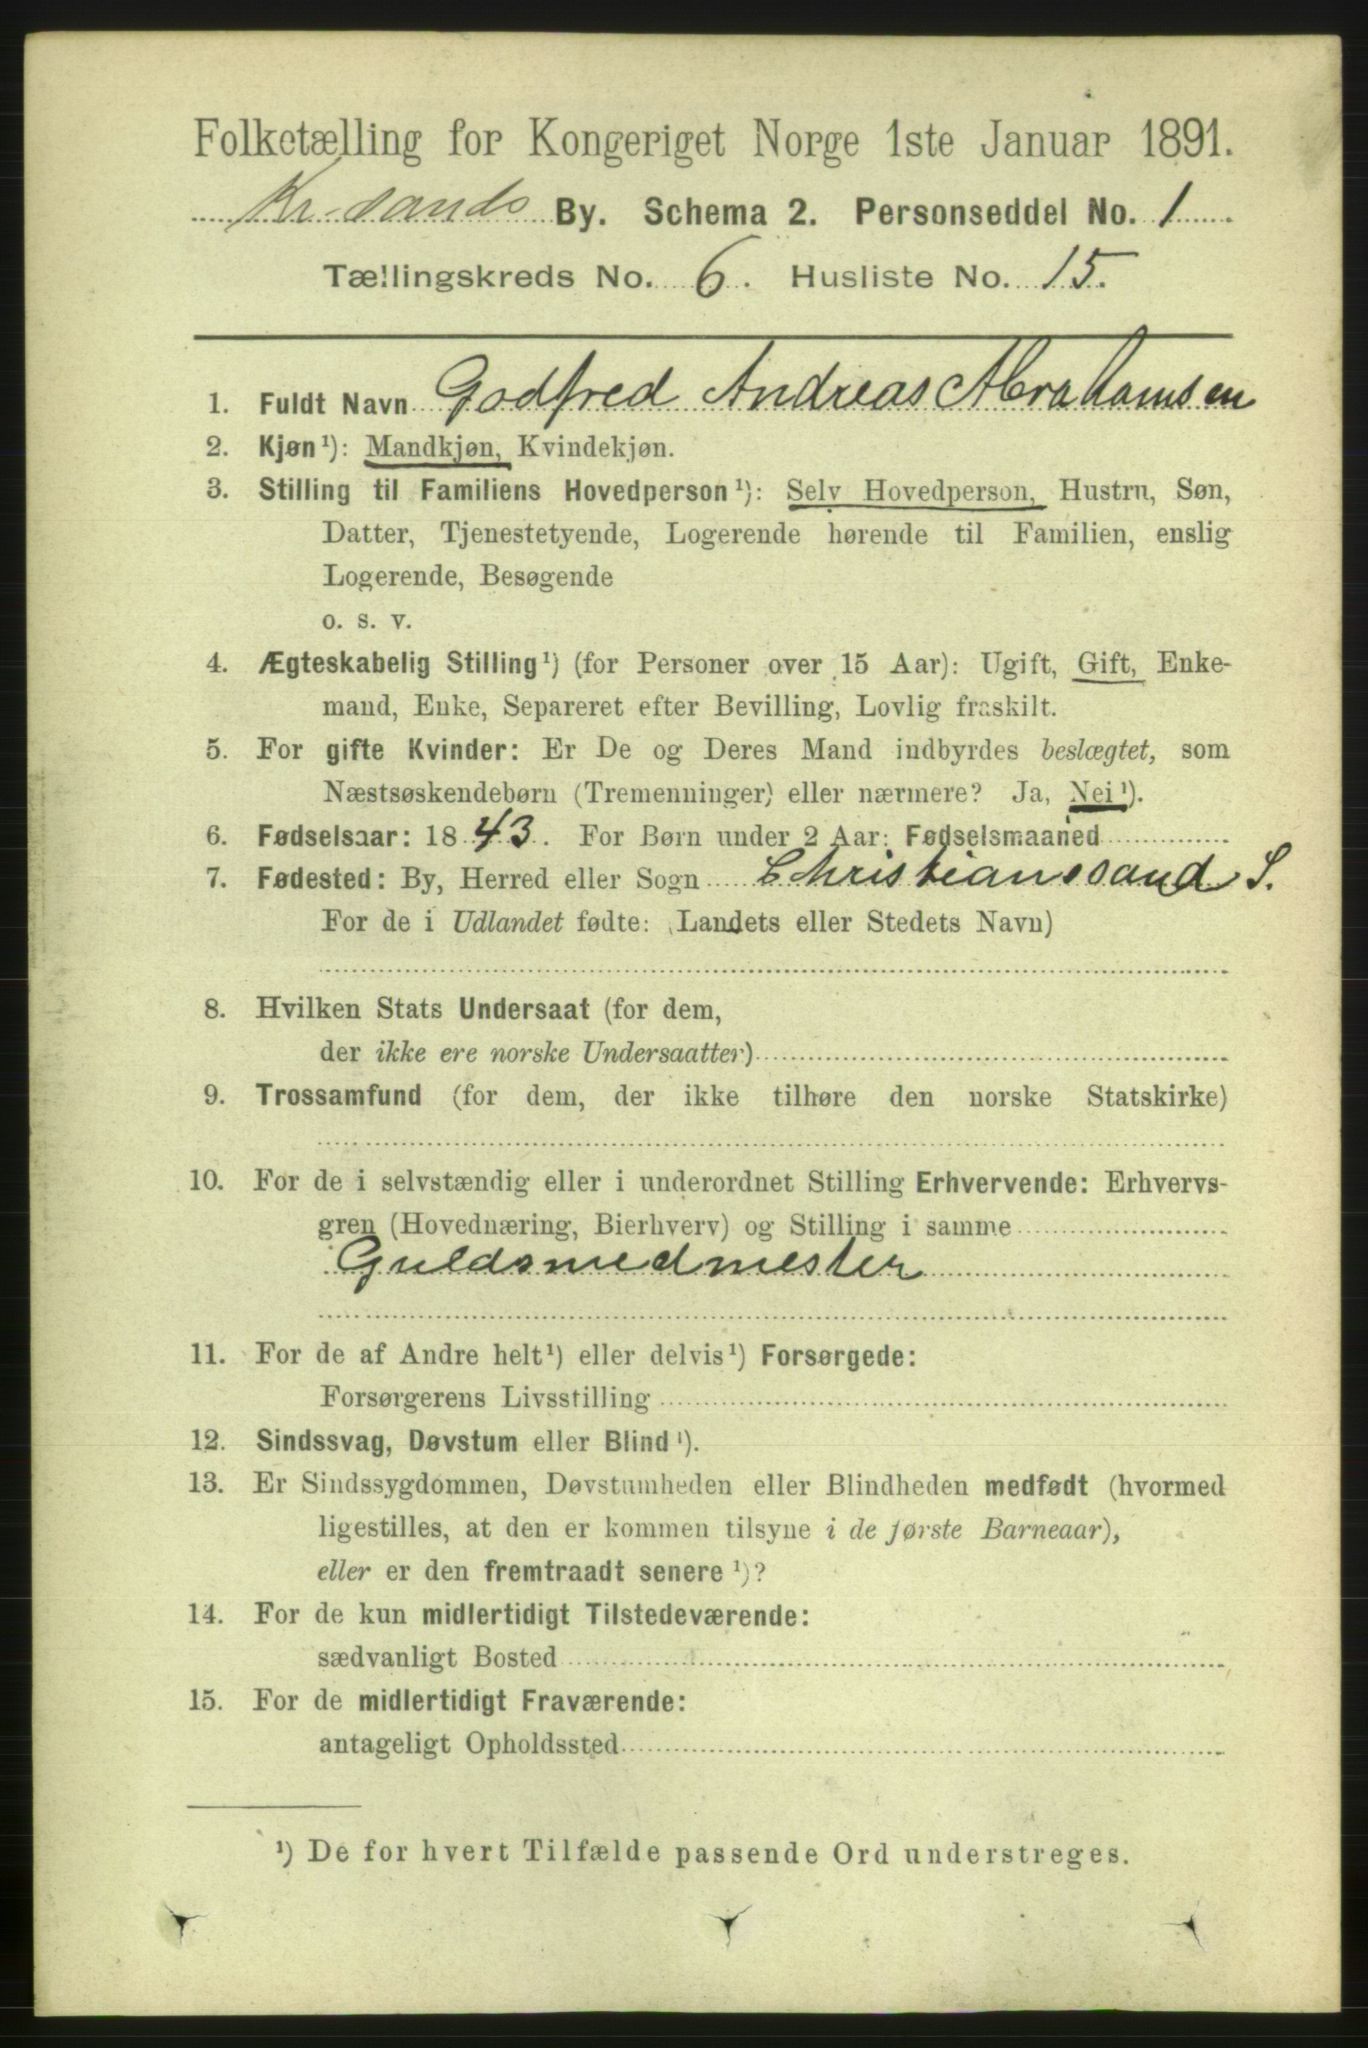 Folketælling for Kongeriget Norge 1ste Januar 1891.
Kr.sands By. Schema 2. Personseddel No. 1
Tællingskreds No. 6. Husliste No. 15.
1. Fuldt Navn Godfred Andreas Abrahamsen
2. Kjøn¹): Mandkjøn, Kvindekjøn.
3. Stilling til Familiens Hovedperson¹): Selv Hovedperson, Hustru, Søn,
Datter, Tjenestetyende, Logerende hørende til Familien, enslig
Logerende, Besøgende
o. s. v.
4. Ægteskabelig Stilling¹) (for Personer over 15 Aar): Ugift, Gift, Enke-
mand, Enke, Separeret efter Bevilling, Lovlig fraskilt.
5. For gifte Kvinder: Er De og Deres Mand indbyrdes beslægtet, som
Næstsøskendebørn (Tremenninger) eller nærmere? Ja, Nei¹).
6. Fødselsaar: 1843. For Børn under 2 Aar: Fødselsmaaned
7. Fødested: By, Herred eller Sogn Christianssand S.
For de i Udlandet fødte: (Landets eller Stedets Navn)
8. Hvilken Stats Undersaat (for dem,
der ikke ere norske Undersaatter)
9. Trossamfund (for dem, der ikke tilhøre den norske Statskirke)
10. For de i selvstændig eller i underordnet Stilling Erhvervende: Erhvervs-
gren (Hovednæring, Bierhverv) og Stilling i samme
Guldsmedmester
11. For de af Andre helt¹) eller delvis¹) Forsørgede:
Forsørgerens Livsstilling
12. Sindssvag, Døvstum eller Blind¹).
13. Er Sindssygdommen, Døvstumheden eller Blindheden medfødt (hvormed
ligestilles, at den er kommen tilsyne i de første Barneaar),
eller er den fremtraadt senere¹)?
14. For de kun midlertidigt Tilstedeværende:
sædvanligt Bosted
15. For de midlertidigt Fraværende:
antageligt Opholdssted
¹) De for hvert Tilfælde passende Ord understreges.